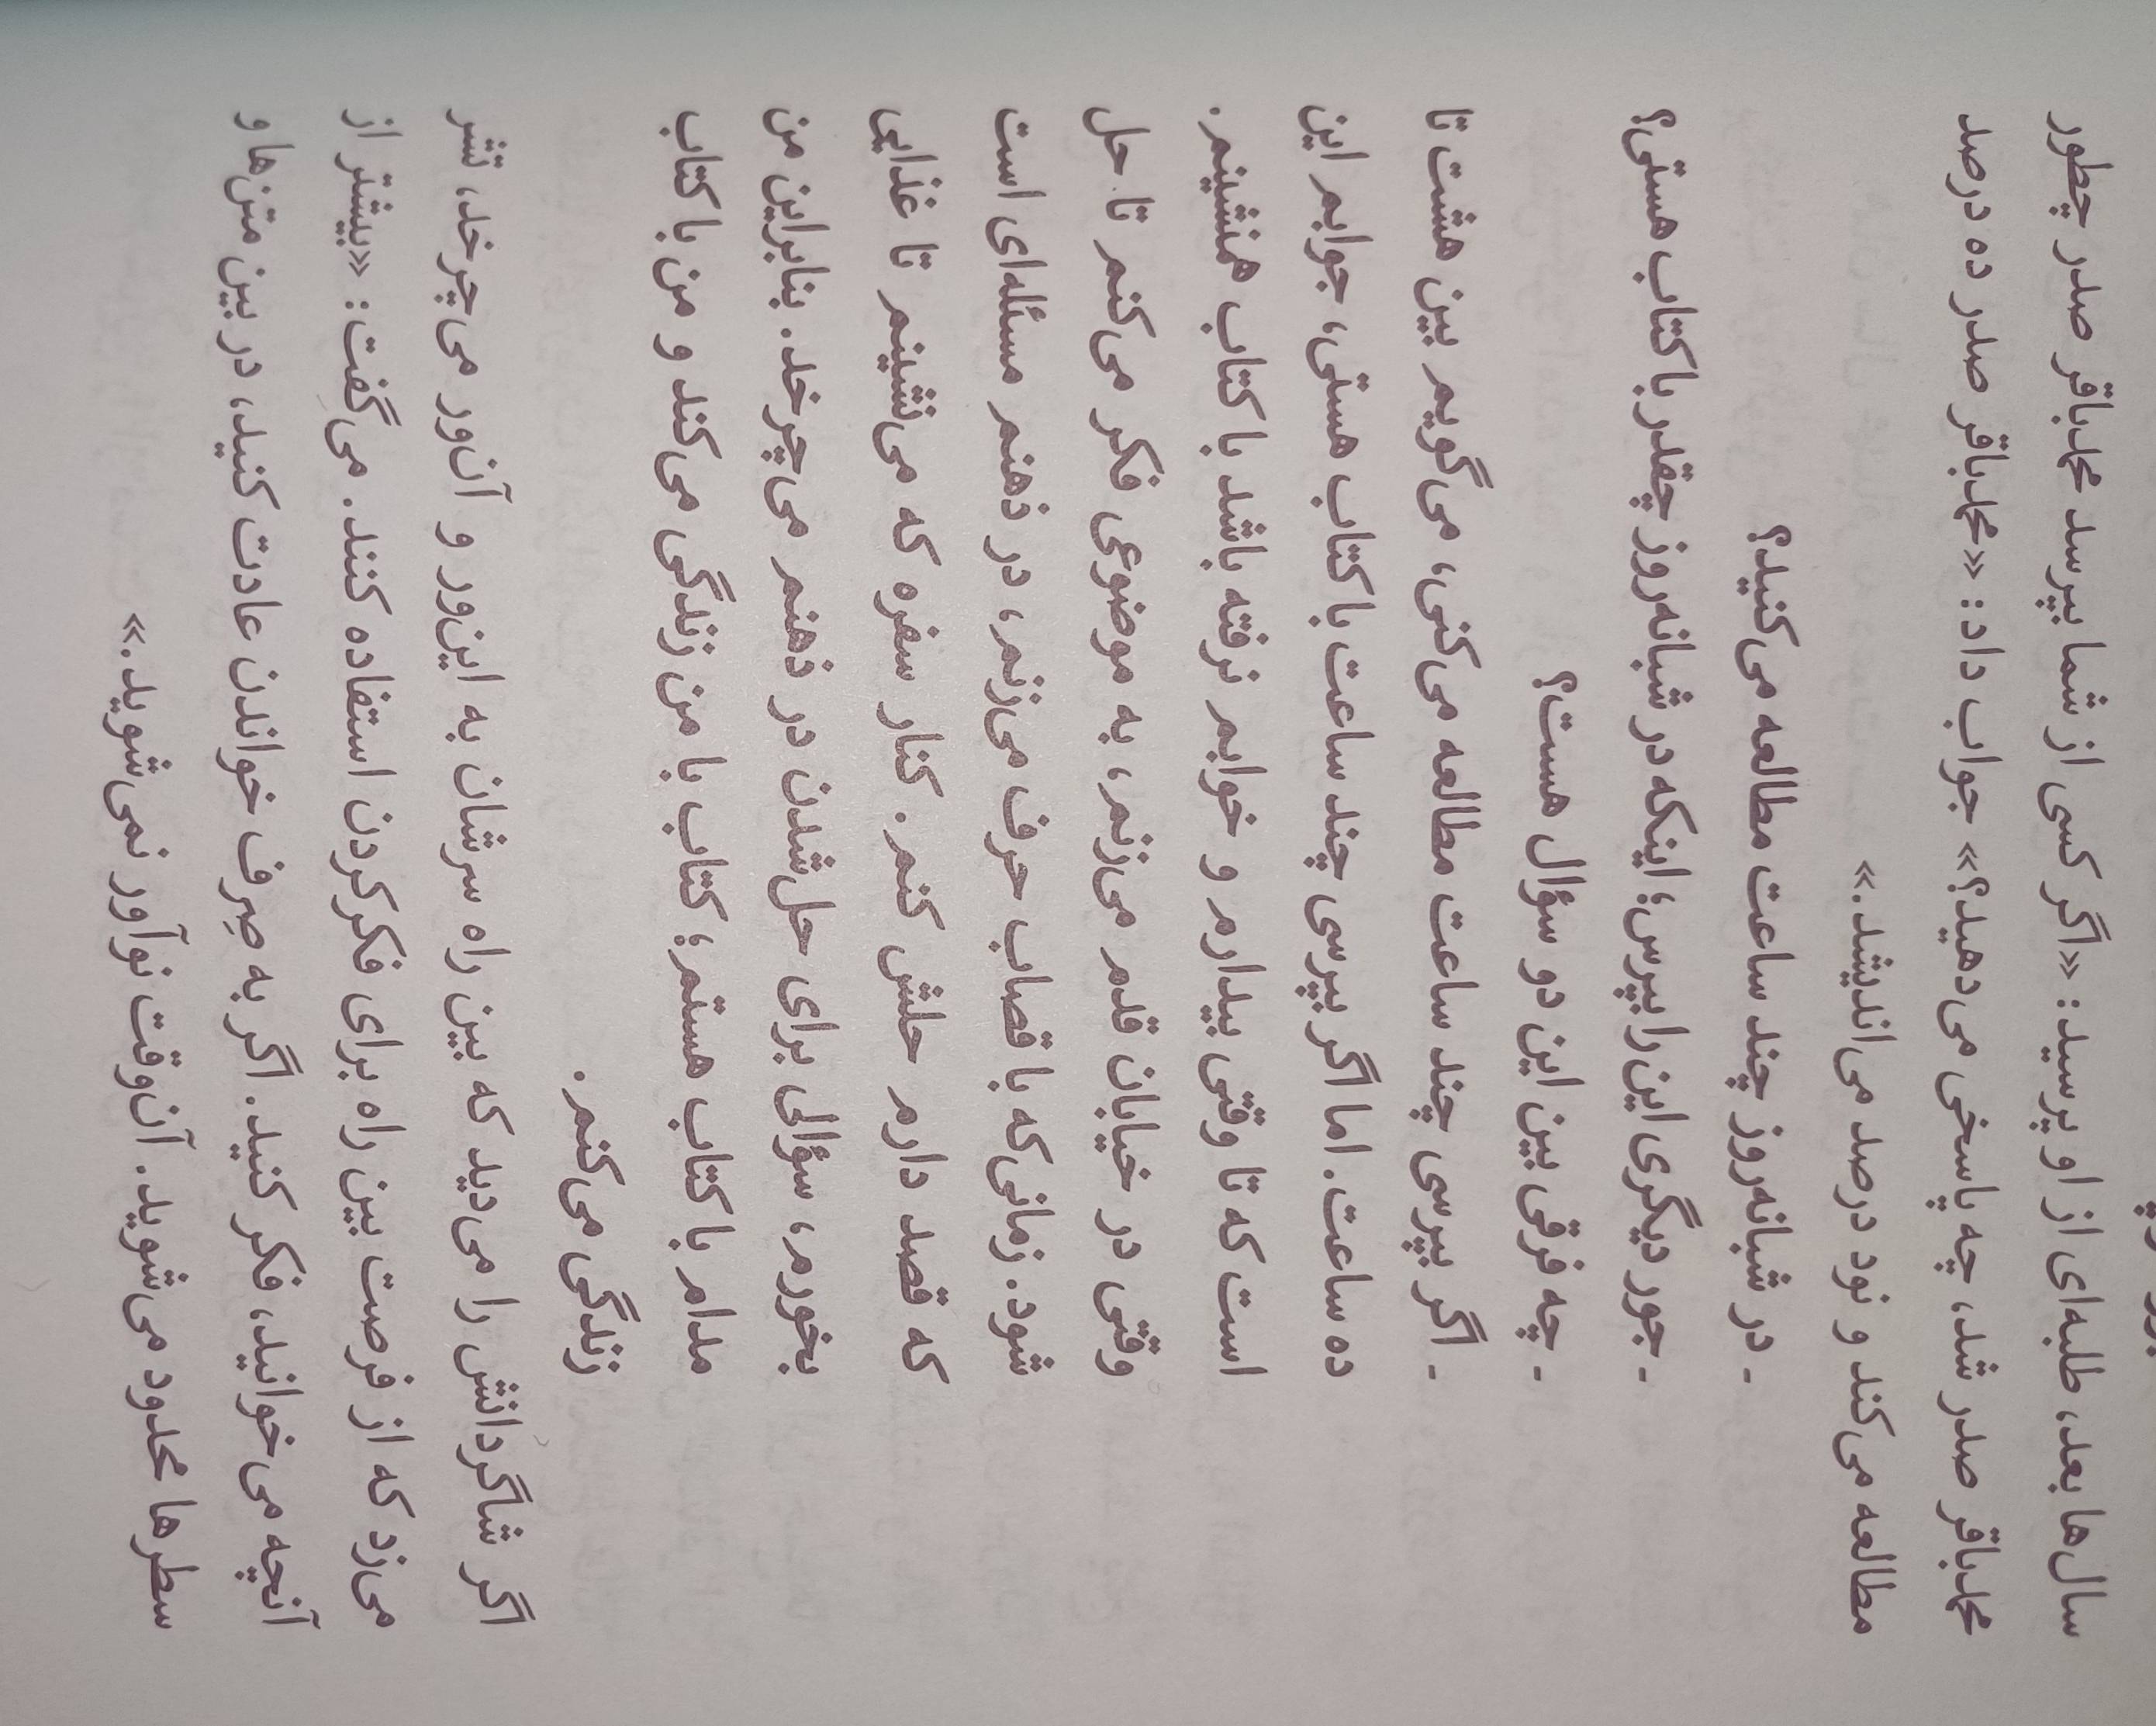 سال‌ها بعد، طلبه‌ای از او پرسید: «اگر کسی از شما بپرسد محمدباقر صدر چطور
محمدباقر صدر شد، چه پاسخی می‌دهید؟» جواب داد: «محمدباقر صدر ده درصد
مطالعه می‌کند و نود درصد می‌اندیشد.»
- در شبانه‌روز چند ساعت مطالعه می‌کنید؟
- جور دیگری این را بپرس؛ اینکه در شبانه‌روز چقدر با کتاب هستی؟
- چه فرقی بین این دو سؤال هست؟
- اگر بپرسی چند ساعت مطالعه می‌کنی، می‌گویم بین هشت تا
ده ساعت. اما اگر بپرسی چند ساعت با کتاب هستی، جوابم این
است که تا وقتی بیدارم و خوابم نرفته باشد با کتاب همنشینم.
وقتی در خیابان قدم می‌زنم، به موضوعی فکر می‌کنم تا حل
شود. زمانی‌که با قصاب حرف می‌زنم، در ذهنم مسئله‌ای است
که قصد دارم حلش کنم. کنار سفره که می‌نشینم تا غذایی
بخورم، سؤالی برای حل‌شدن در ذهنم می‌چرخد. بنابراین من
مدام با کتاب هستم؛ کتاب با من زندگی می‌کند و من با کتاب
زندگی می‌کنم.
اگر شاگردانش را می‌دید که بین راه سرشان به این‌ور و آن‌ور می‌چرخد، تشر
می‌زد که از فرصت بین راه برای فکرکردن استفاده کنند. می‌گفت: «بیشتر از
آنچه می‌خوانید، فکر کنید. اگر به صِرف خواندن عادت کنید، در بین متن‌ها و
سطرها محدود می‌شوید. آن‌وقت نوآور نمی‌شوید.»